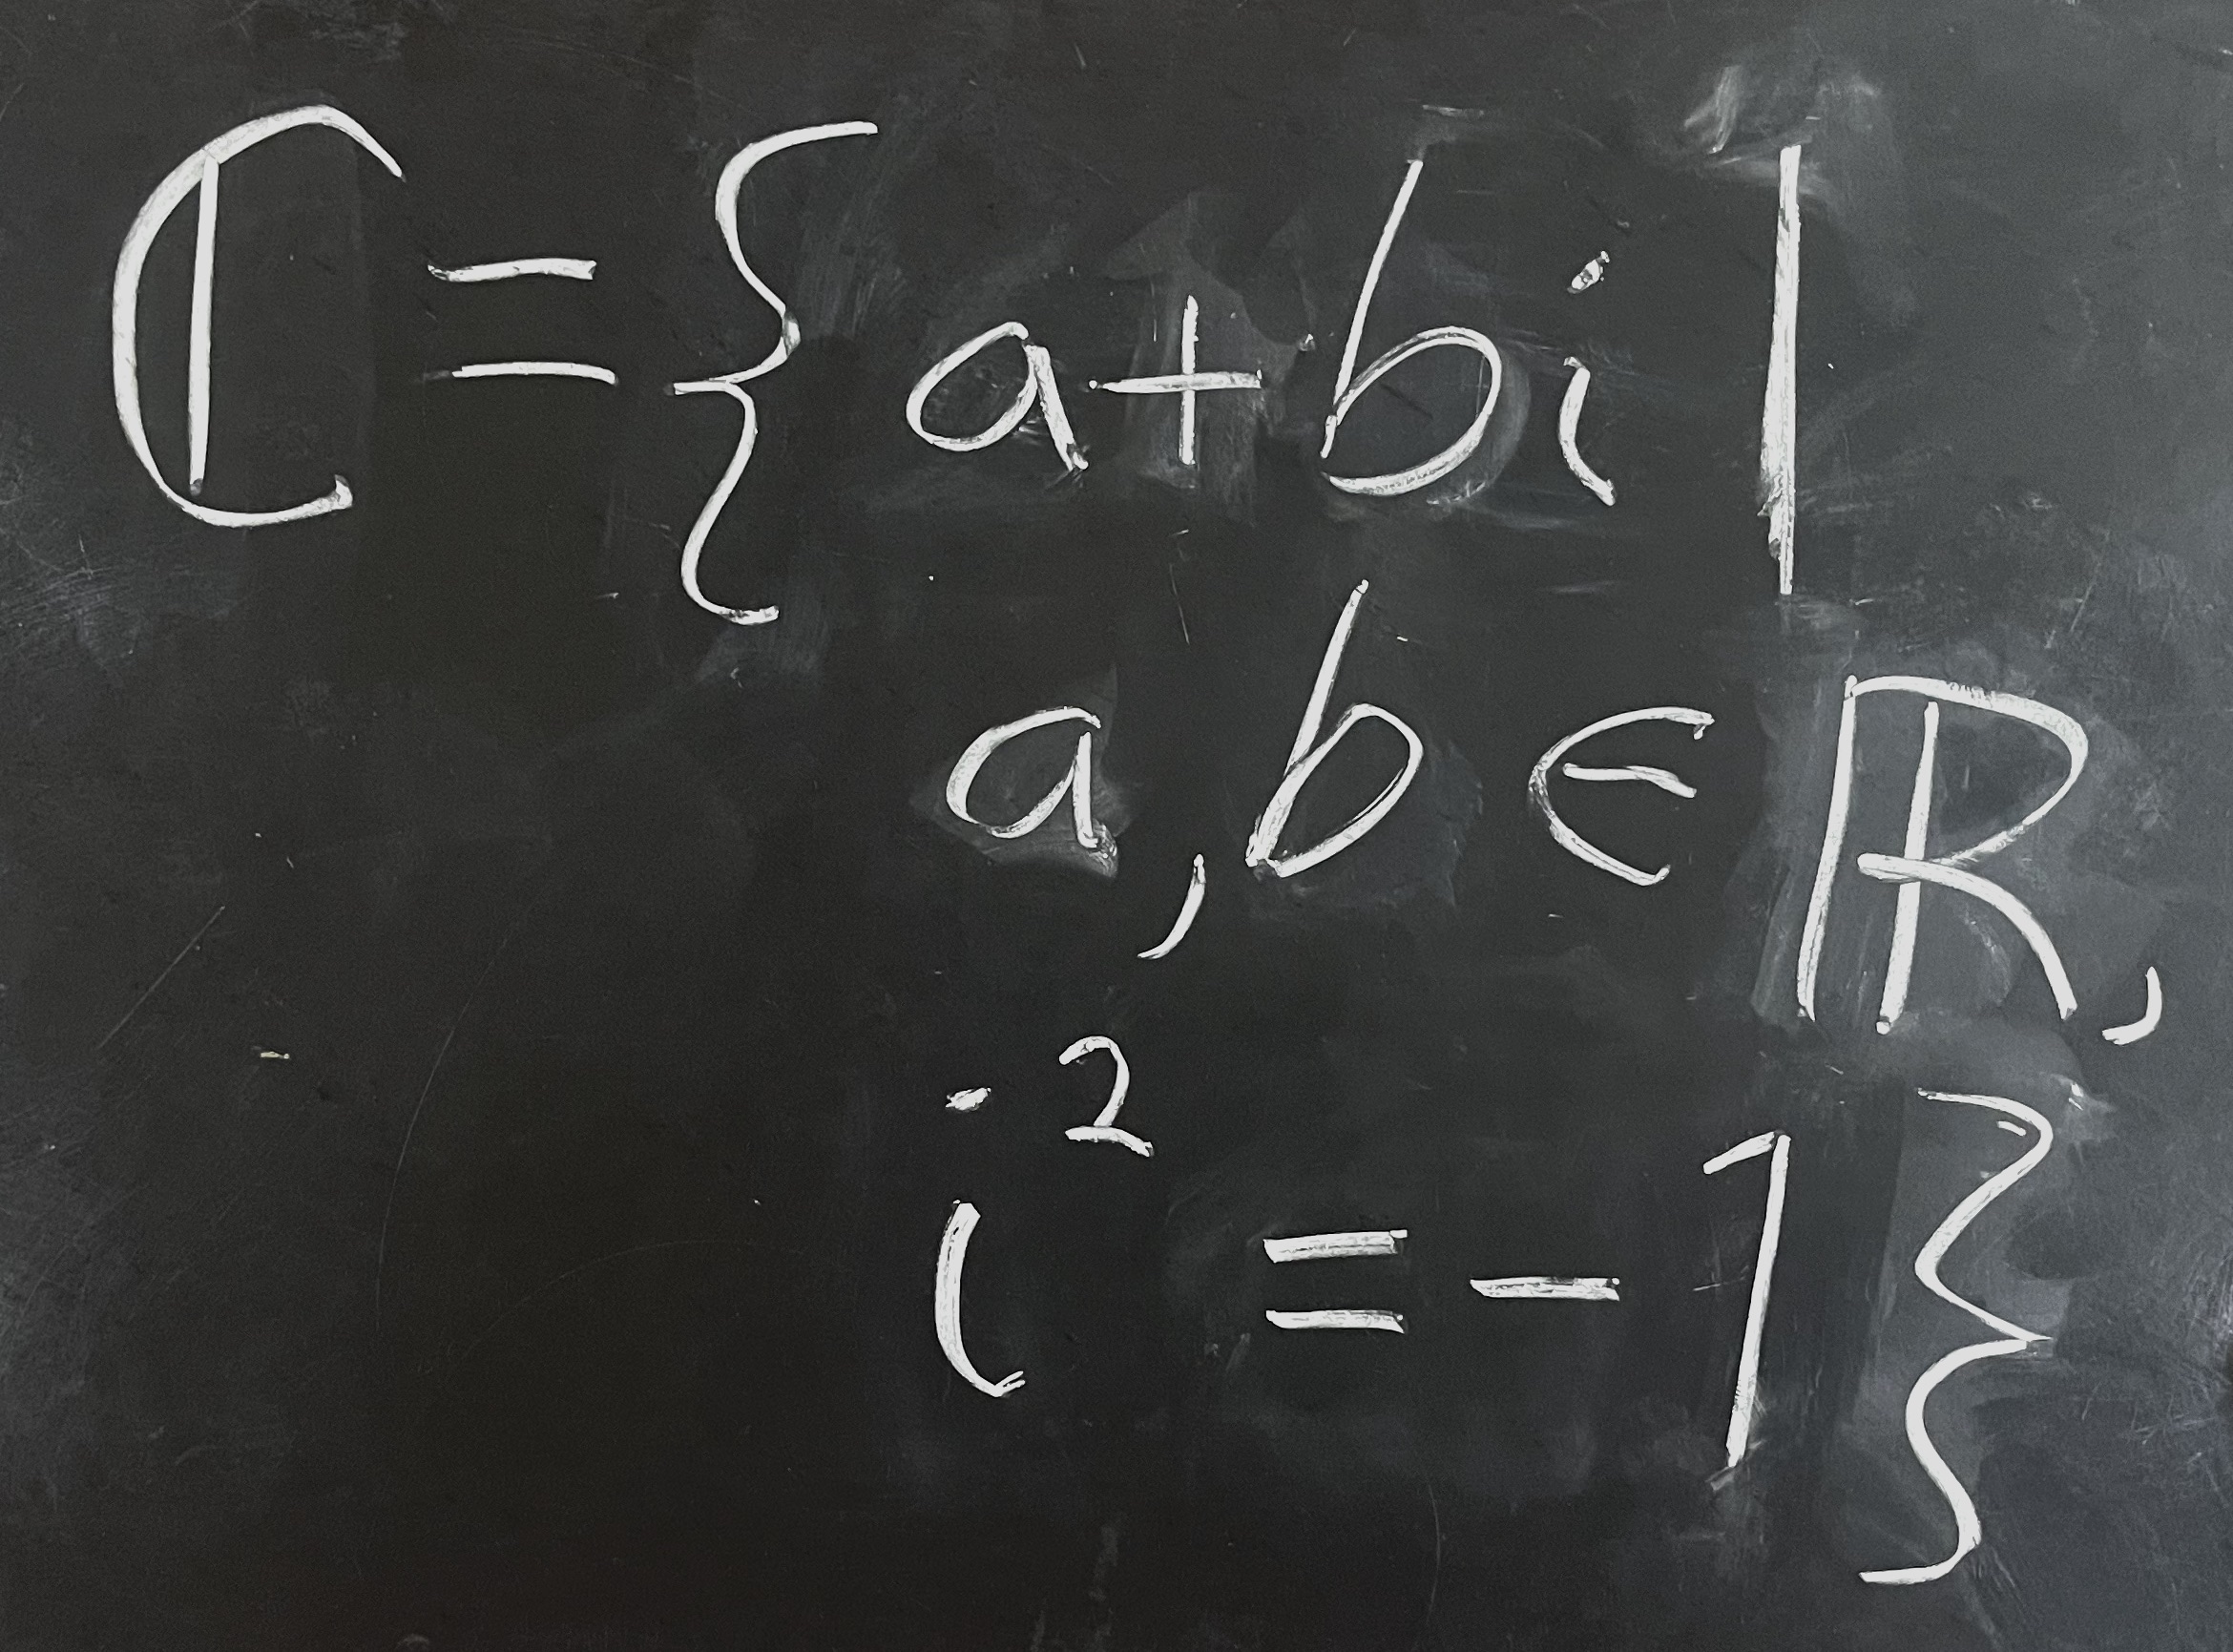 ℂ = { a + bi |
a, b ∈ ℝ,
i² = -1 }